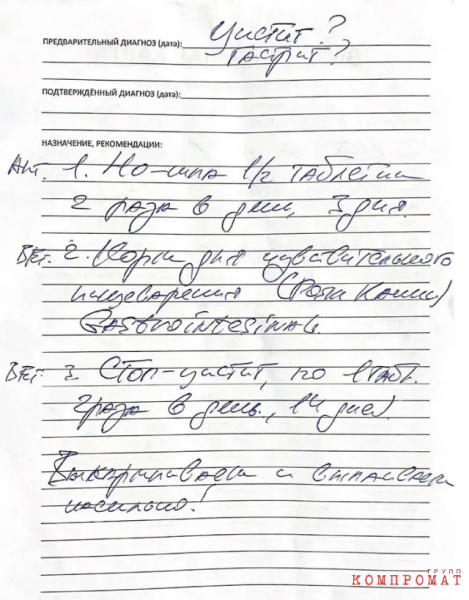 Цистит?
ПРЕДВАРИТЕЛЬНЫЙ ДИАГНОЗ (дата):
Гастрит?
ПОДТВЕРЖДЁННЫЙ ДИАГНОЗ (дата):
НАЗНАЧЕНИЕ, РЕКОМЕНДАЦИИ:
Апт. 1. Но-шпа 1/2 таблетки
2 раза в день, 3 дня.
Вет. 2. Корм для чувствительного
пищеварения (Роял Канин)
Gastrointestinal
Вет. 3. Стоп-цистит, по 1 табл.
2 раза в день, 14 дней.
и выпаиваем
насильно!
ГРУПП
КОМПРОМАТ